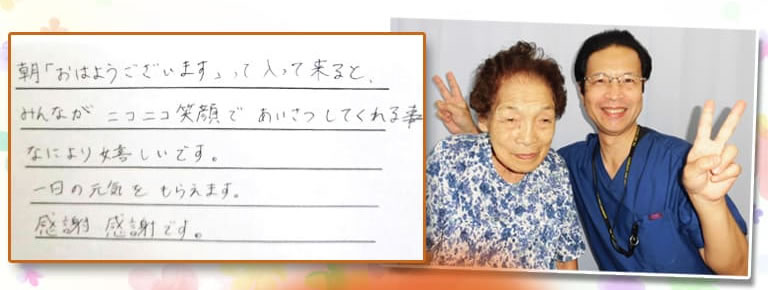 朝「おはようございます」って入って来ると、
みんなが ニコニコ笑顔で あいさつしてくれる事
なにより嬉しいです。
一日の元気を もらえます。
感謝 感謝です。